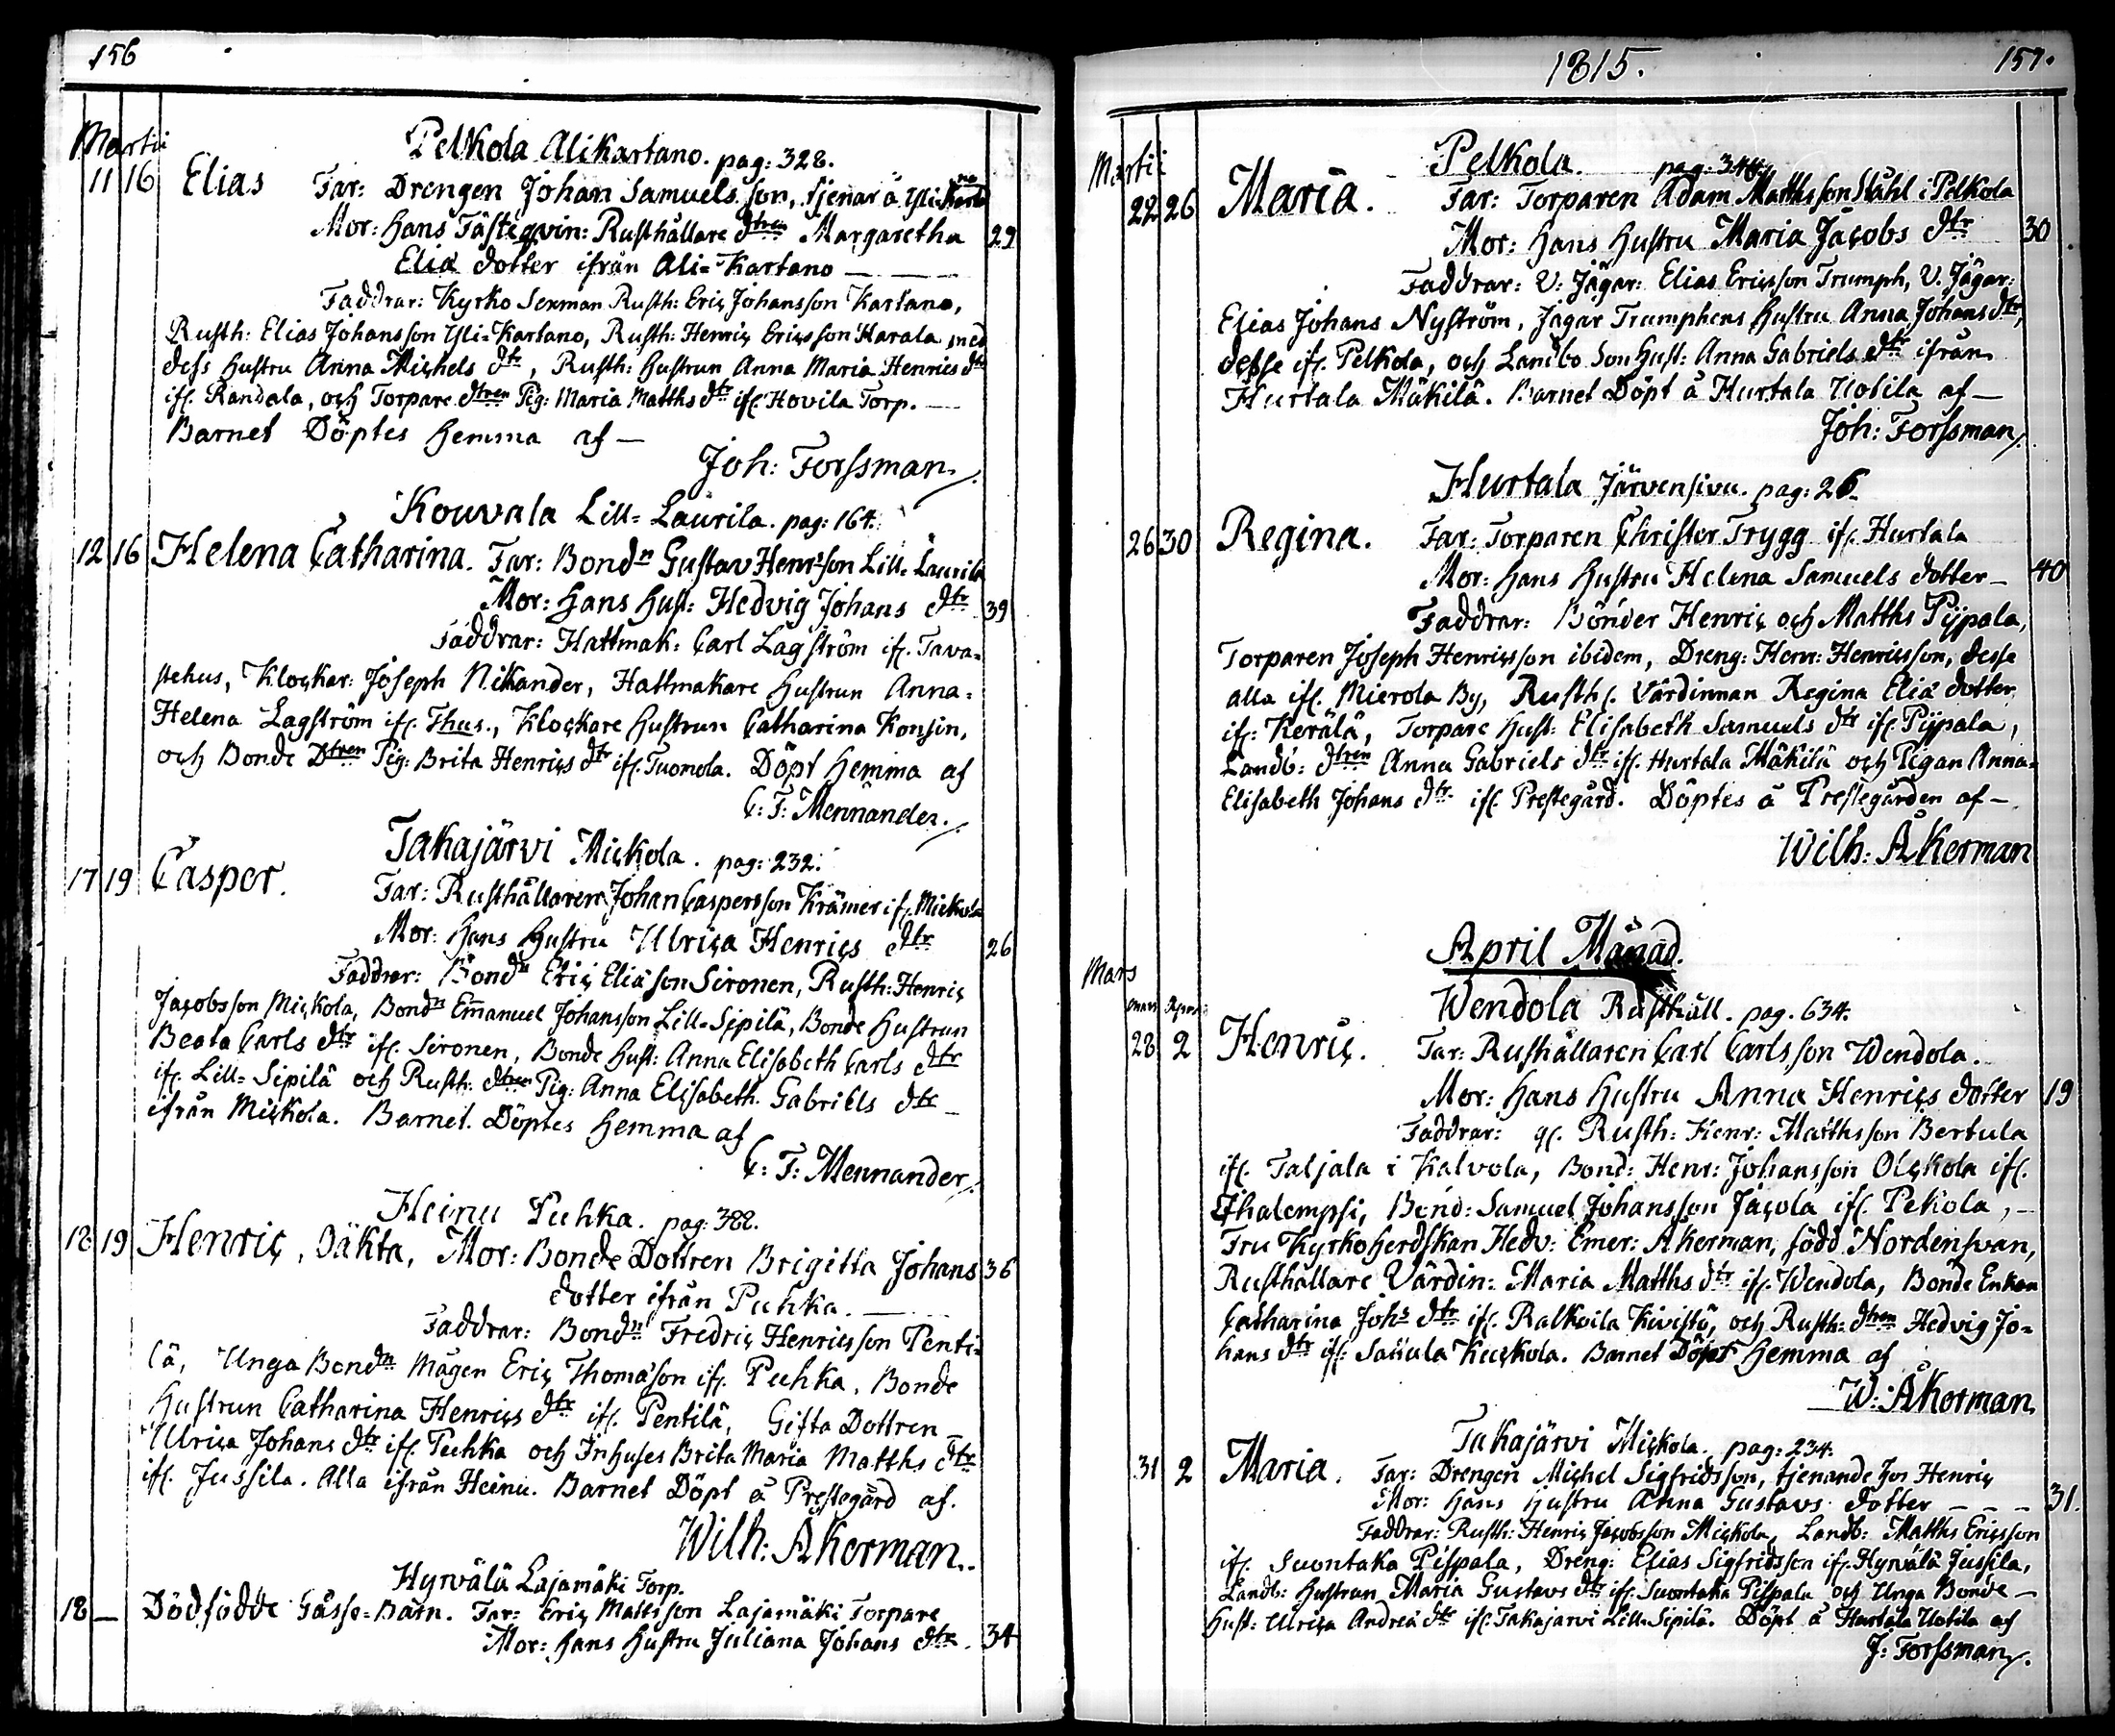 156
Martii
Pelkola Alikartano. pag: 328.
11 16 Elias Far: Drengen Johan Samuels son, tjenar å Yli-Karta no
Mor: Hans Fästeqvin: Rusthållare dtren Margaretha 29
Eliä dotter ifrån Ali-Kartano —
Faddrar: Kyrko Sexman Rusth: Eriç Johansson Kartano,
Rusth: Elias Johansson Yli-Kartano, Rusth: Henriç Ericsson Harala med
dess Hustru Anna Michels dtr, Rusth: Hustrun Anna Maria Henrics dtr
ifr. Randala, och Torpare dtren Pig: Maria Matths dtr ifr. Hovila Torp. —
Barnet Döptes hemma af —
Joh: Forssman.
Kouvala Lill-Laurila. pag: 164.
12 16 Helena Catharina. Far: Bondn Gustav Henr:son Lill-Laurila
Mor: Hans Hust: Hedvig Johans dtr 39
Faddrar: Hattmak: Carl Lagström ifr. Tava-
stehus, Klockar: Joseph Nikander, Hattmakare Hustrun Anna-
Helena Lagström ifr. Thus., Klockare Hustrun Catharina Konsin,
och Bonde Dtren Pig: Brita Henrics dtr ifr. Tuomola. Döpt hemma af
C: F: Mennander.
Takajärvi Mickola. pag: 232.
17 19 Casper. Far: Rusthållaren Johan Caspersson Krämer ifr. Mickola
Mor: Hans Hustru Ulrica Henrics dtr 26
Faddrar: Bondn Eric Eliäson Sironen, Rusth: Henric
Jacobsson Mickola, Bondn Emanuel Johansson Lill-Sipilä, Bonde Hustrun
Beata Carls dtr ifr. Sironen, Bonde Hust: Anna Elisabeth Carls dtr
ifr. Lill-Sipilä och Rusth: dtren Pig: Anna Elisabeth Gabriels dtr —
ifrån Mickola. Barnet Döptes hemma af
C: F: Mennander
Heinu Puhka. pag: 382.
18 19 Henric, Oäkta, Mor: Bonde Dottren Brigitta Johans 36
dotter ifrån Puhka. —
Faddrar: Bondn Fredric Henricsson Penti-
lä, Unga Bondn Mågen Eric Thomäson ifr. Puhka, Bonde
Hustrun Catharina Henrics dtr ifr. Pentilä, Gifta Dottren —
Ulrica Johans dtr ifr. Puhka och Inhuses Brita Maria Matths dtr
ifr. Jussila. Alla ifrån Heinu. Barnet Döpt å Prestegård af.
Wilh: Åkerman.
Hyrvälä Lajamäki Torp.
18 — Dödfödde Gosse-Barn. Far: Eric Mattsson Lajamäki Torpare
Mor: Hans Hustru Juliana Johans dtr. 34
1815. 157.
Martii
Pelkola. pag: 344.
22 26 Maria. Far: Torparen Adam Matthsson Ståhl i Pelkola
Mor: Hans Hustru Maria Jacobs dtr 30
Faddrar: V: Jägar: Elias Ericsson Trumph, V. Jägar:
Elias Johans Nyström, Jägar Trumphens Hustru Anna Johans dtr,
desse ifr. Pelkola, och Landbo Son Hust: Anna Gabriels dtr ifrån
Hurtala Mäkilä. Barnet Döpt å Hurtala Uotila af —
Joh: Forssman
Hurtala Järvensivu. pag: 26.
26 30 Regina. Far: Torparen Christer Trygg ifr. Hurtala
Mor: Hans Hustru Helena Samuels dotter — 40
Faddrar: Bönder Henric och Matths Pijpala,
Torparen Joseph Henricsson ibidem, Dreng: Henr: Henricsson, desse
alla ifr. Mierola By, Rusth. Värdinnan Regina Eliä dotter
ifr. Kerälä, Torpare Hust: Elisabeth Samuels dtr ifr. Pijpala,
Landb: dtren Anna Gabriels dtr ifr. Hurtala Mäkilä och Pigan Anna-
Elisabeth Johans dtr ifr. Prestegård. Döptes å Prestegården af —
Wilh: Åkerman
April Månad.
Mars
Wendola Rusthåll. pag. 634.
28 2 Henric. Far: Rusthållaren Carl Carlsson Wendola.
Mor: Hans Hustru Anna Henrics dotter 19
Faddrar: Rusth: Henr: Matthsson Bertula
ifr. Taljala i Kalvola, Bond: Henr: Johansson Olckola ifr.
Ihalempi, Bond: Samuel Johansson Jacola ifr. Pekola, —
Fru Kyrkoherdskan Hedv: Emer: Åkerman, född Nordensvan,
Rusthållare Värdin: Maria Matths dtr ifr. Wendola, Bonde Enkan
Catharina Johs dtr ifr. Ralkoila Kivistö, och Rusth: dtren Hedvig Jo-
hans dtr ifr. Sauula Kuckola. Barnet Döpt hemma af
W: Åkerman
Takajärvi Mickola. pag: 234.
31 2 Maria. Far: Drengen Michel Sigfridsson, tjenande hos Henric
Mor: Hans Hustru Anna Gustavs dotter — — — 31.
Faddrar: Rusth: Henric Jacobsson Mickola, Landb: Matths Ericsson
ifr. Suontaka Pispala, Dreng: Elias Sigfridsson ifr. Hyrvälä Jussila,
Landb: Hustrun Maria Gustavs dtr ifr. Suontaka Pispala och Unga Bonde —
Hust: Ulrica Andreä dtr ifr. Takajärvi Lill-Sipilä. Döpt å Hurtala Uotila af
J: Forssman.